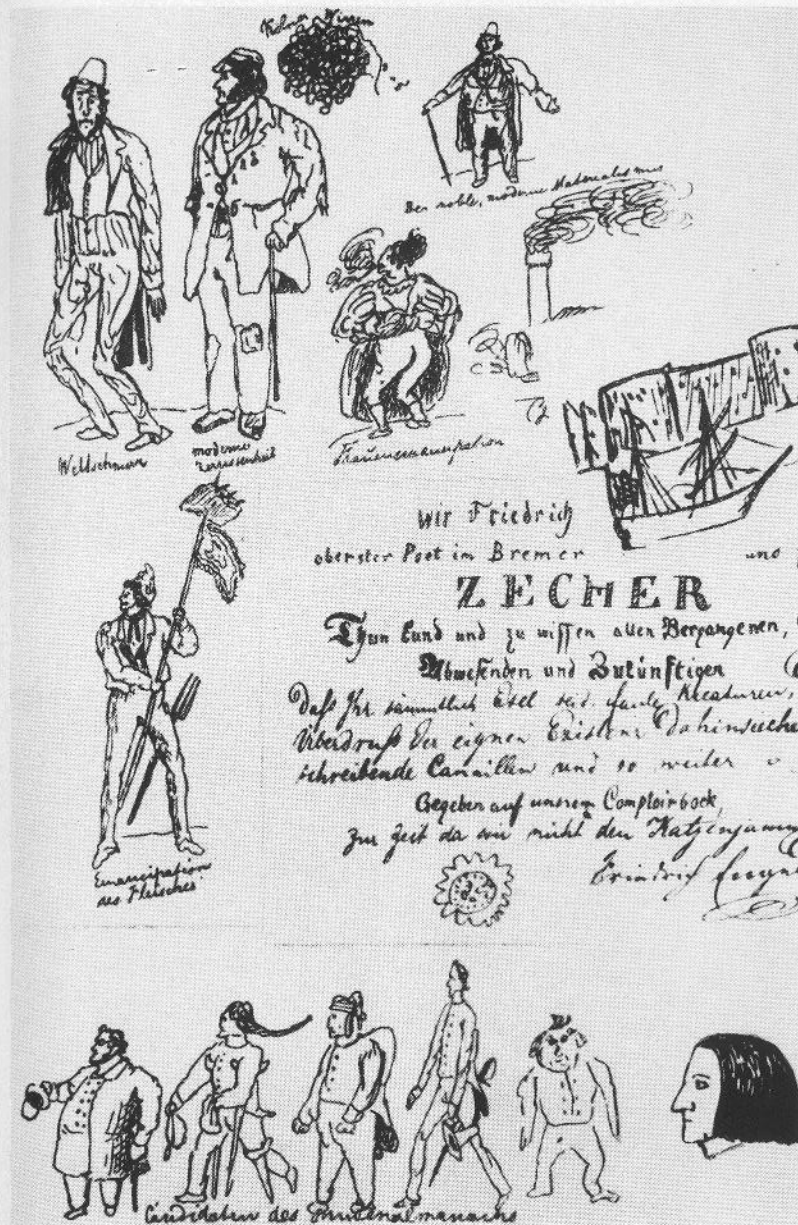 Kölner Wirren
Der noble, moderne Materialismus
Weltschmerz
moderne
Zerrissenheit
Frauenemancipation
Wir Friedrich
oberster Poet im Bremer
und
ZECHER
Thun kund und zu wissen allen Vergangenen,
Abwesenden und Zukünftigen
Daß Ihr sämmtlich Esel seid, faule Kreaturen,
Überdruß der eignen Existenz dahinsieche
schreibende Canaillen und so weiter
Gegeben auf unserem Comptoirbock,
zur Zeit da wir nicht den Katzenjamm
Friedrich Enge
Emancipation
des Fleisches
Candidaten des